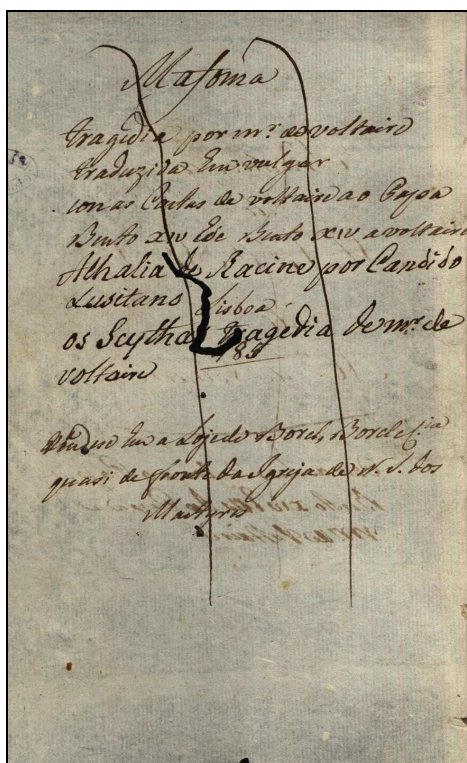 Mafoma
tragedia por mr. de voltaire
traduzida em vulgar
con as Cartas de voltaire ao Papa
Bento XIV E de Bento XIV a voltaire
Athalia de Racine por Candido
Lusitano Lisboa
os Scythas tragedia de mr. de
voltaire
em a Loje de Borel, Borel e Cia
quasi de fronte da Igreja de N. S. dos
Martyres